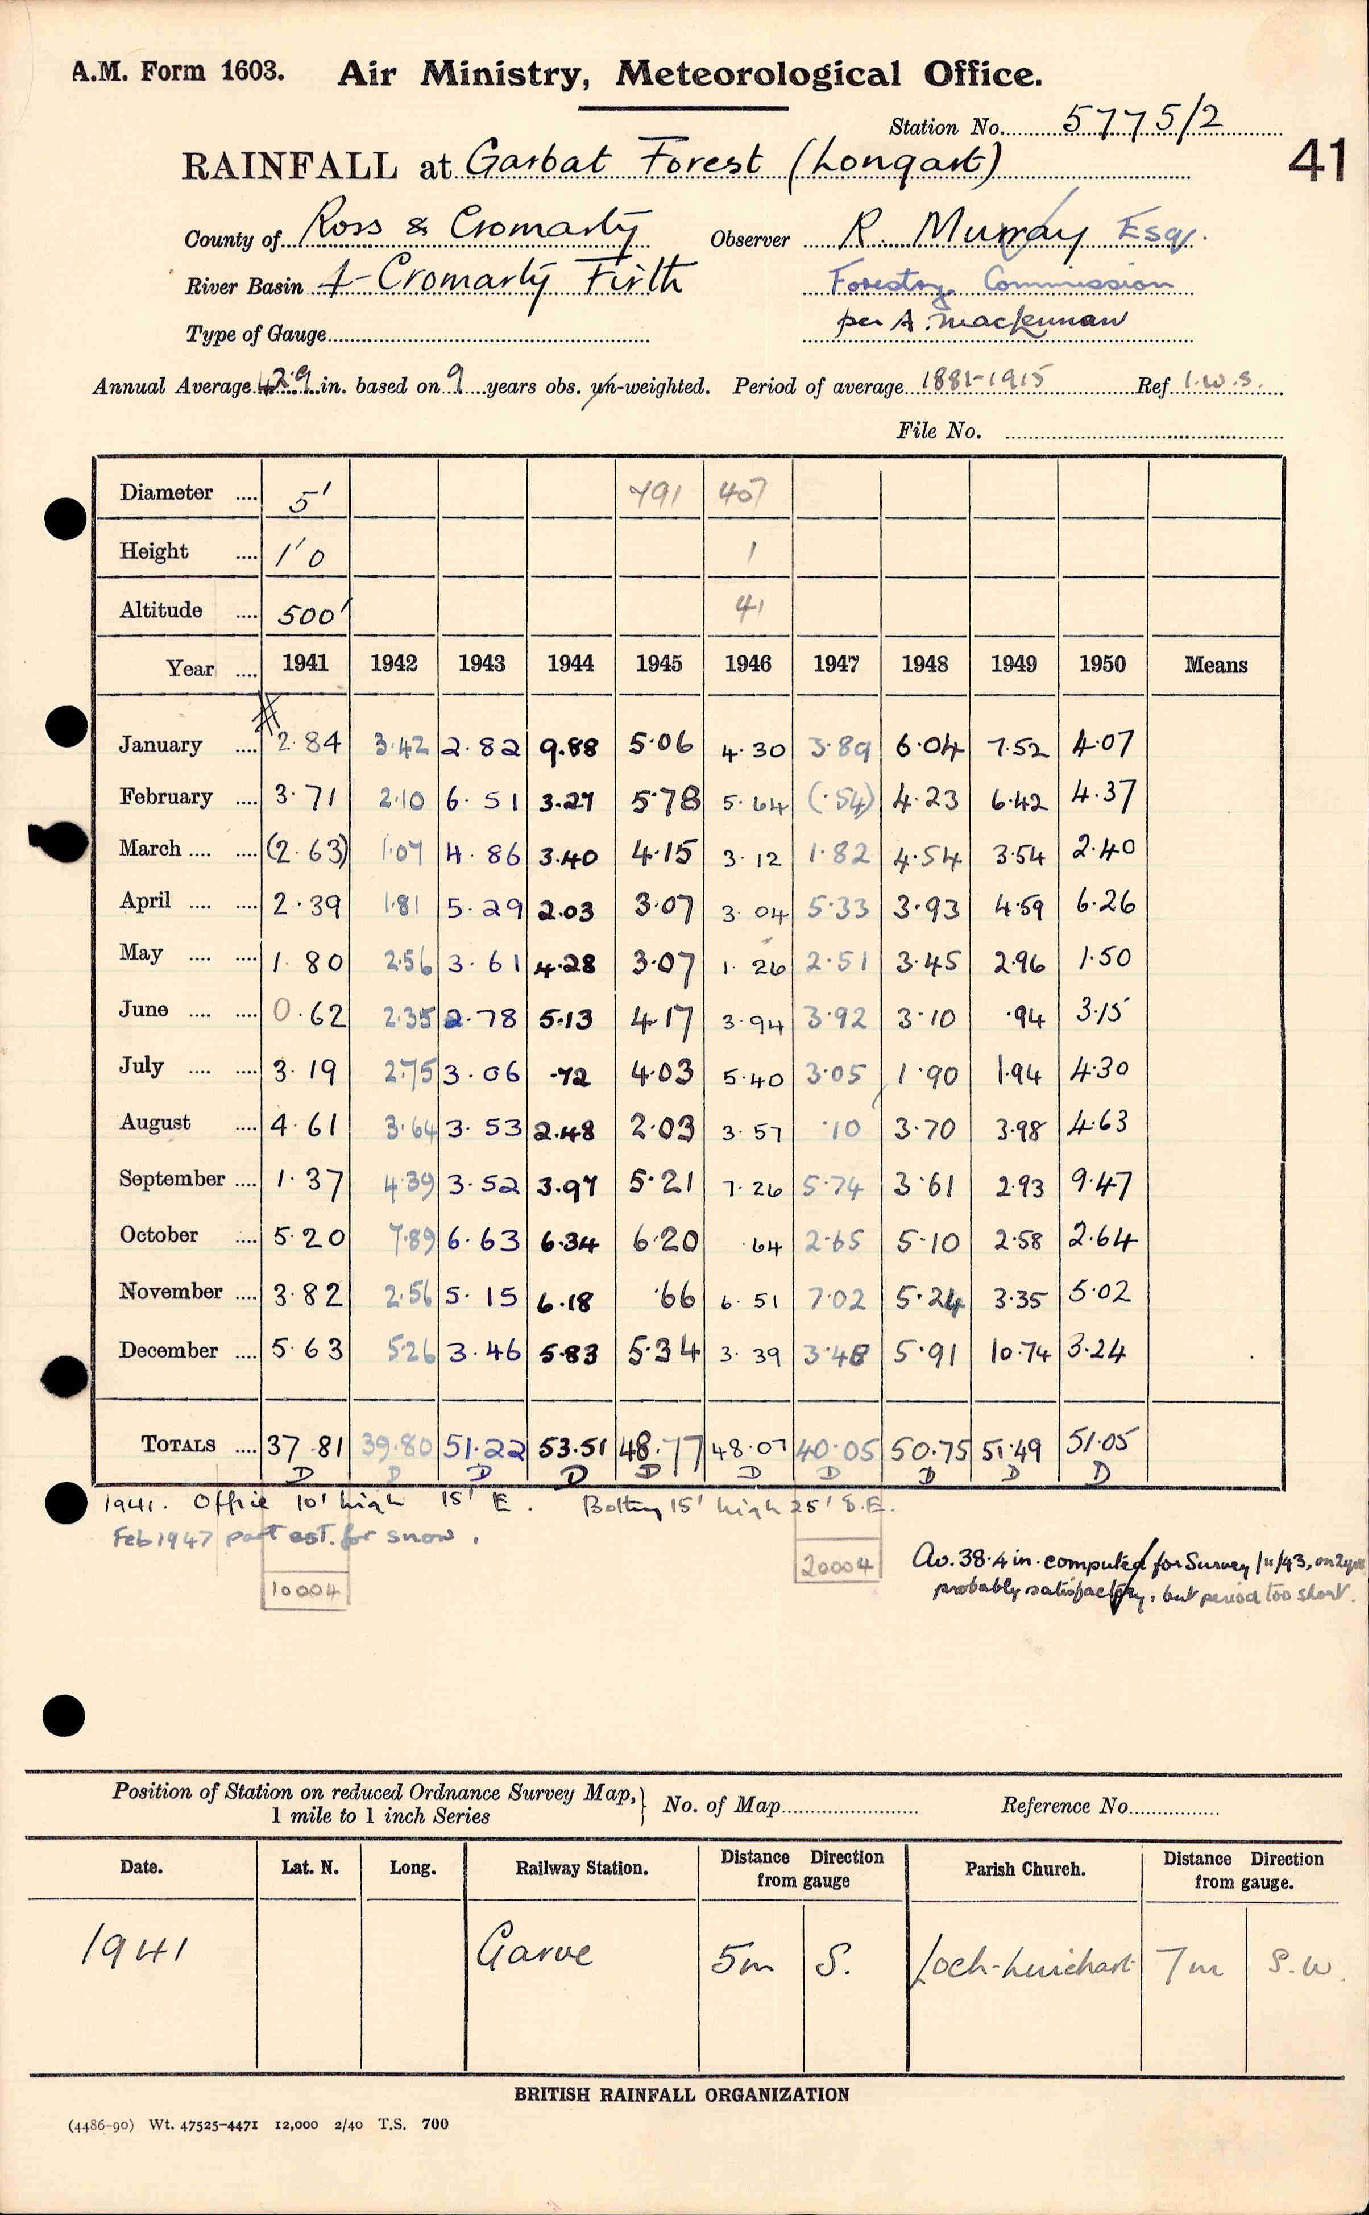 A.M. Form 1603. Air Ministry, Meteorological Office.
Station No. 5775/2
RAINFALL at Garbat Forest (Longart)
41
County of Ross & Cromarty Observer R. Murray Esq.
River Basin Cromarty Firth Forestry Commission
Type of Gauge per A. Mackennan
Annual Average 42.9 in. based on 9 years obs. un-weighted. Period of average 1881-1915 Ref. I.W.S.
File No.
Diameter .... 5' 791 407
Height .... 1'0 1
Altitude .... 500' 41
Year .... 1941 1942 1943 1944 1945 1946 1947 1948 1949 1950 Means
January .... 2.84 3.42 2.82 9.88 5.06 4.30 3.89 6.04 7.52 4.07
February .... 3.71 2.10 6.51 3.27 5.78 5.64 (.54) 4.23 6.42 4.37
March .... .... (2.63) 1.07 4.86 3.40 4.15 3.12 1.82 4.54 3.54 2.40
April .... .... 2.39 1.81 5.29 2.03 3.07 3.04 5.33 3.93 4.59 6.26
May .... .... 1.80 2.56 3.61 4.28 3.07 1.26 2.51 3.45 2.96 1.50
June .... .... 0.62 2.35 2.78 5.13 4.17 3.94 3.92 3.10 .94 3.15
July .... .... 3.19 2.75 3.06 .72 4.03 5.40 3.05 1.90 1.94 4.30
August .... 4.61 3.64 3.53 2.48 2.03 3.57 .10 3.70 3.98 4.63
September .... 1.37 4.39 3.52 3.97 5.21 7.26 5.74 3.61 2.93 9.47
October .... 5.20 7.89 6.63 6.34 6.20 .64 2.65 5.10 2.58 2.64
November .... 3.82 2.56 5.15 6.18 .66 6.51 7.02 5.24 3.35 5.02
December .... 5.63 5.26 3.46 5.83 5.34 3.39 3.48 5.91 10.74 3.24
TOTALS .... 37.81 39.80 51.22 53.51 48.77 48.07 40.05 50.75 51.49 51.05
D D D D D D D D D D
1941. Office 10' high 15' E. 15' high 25' S.E.
Feb 1947 part est. for snow.
10004
20004
Av. 38.4 in. computed for Survey 1/11/43, on
probably satisfactory, but period too short.
Position of Station on reduced Ordnance Survey Map,} No. of Map Reference No.
1 mile to 1 inch Series
Date. Lat. N. Long. Railway Station. Distance Direction from gauge Parish Church. Distance Direction from gauge.
1941 Garve 5m S. Loch-Luichart 7m S.W.
BRITISH RAINFALL ORGANIZATION
(4486-90) Wt. 47525-4471 12,000 2/40 T.S. 700